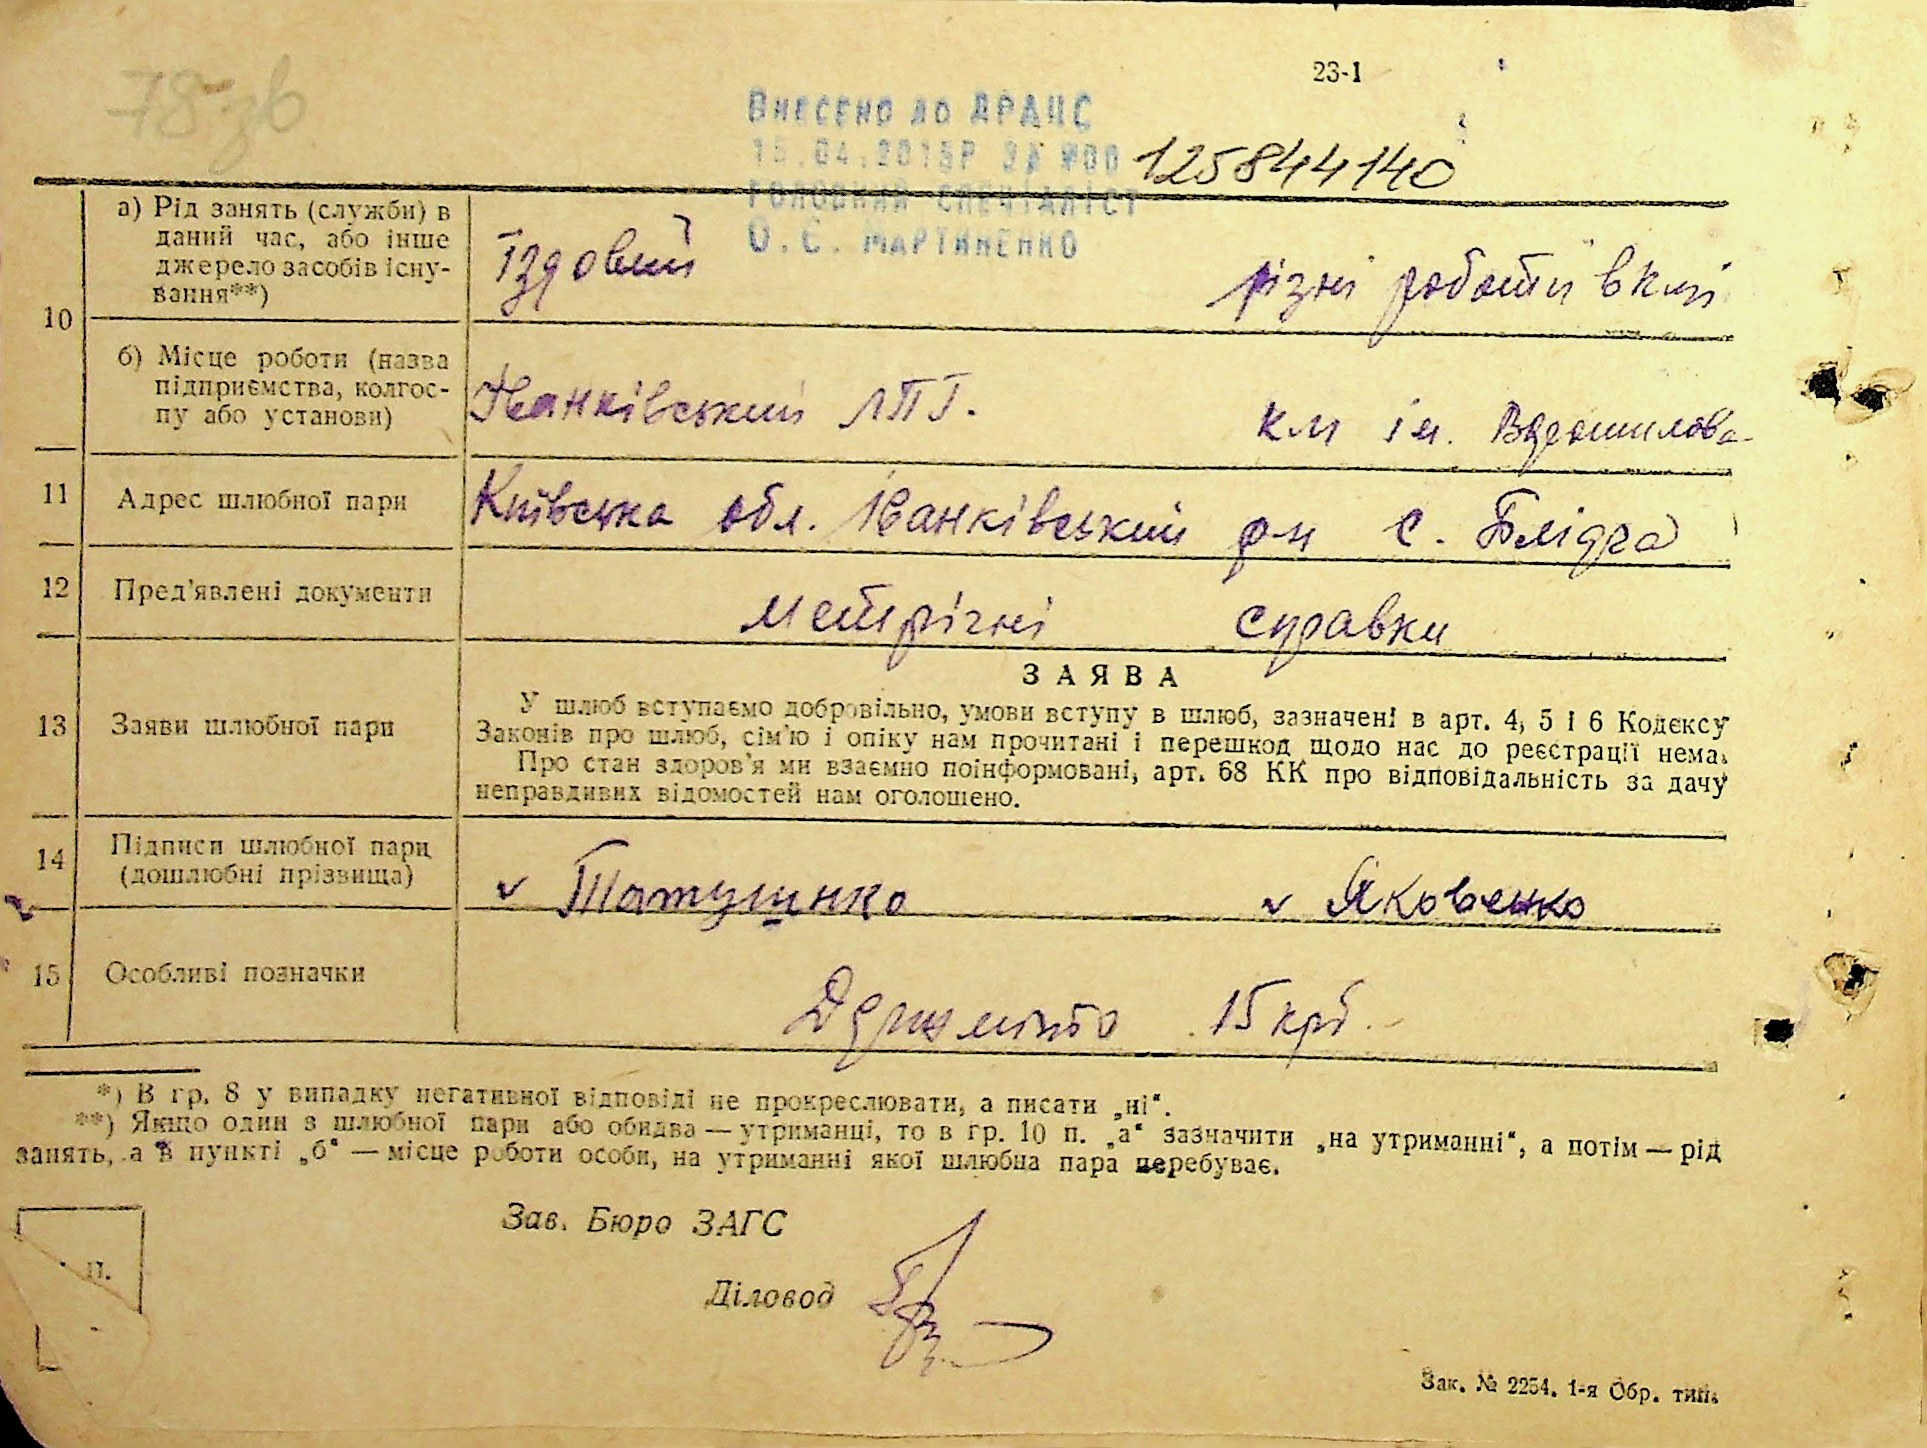 78 зв
23-1
Внесено до ДРАЦС
15.04.2015р за №00 125844140
головний спеціаліст
О.Є. Мартиненко
10
а) Рід занять (служби) в
даний час, або інше
джерело засобів існу-
вання**)
Їздовий
різні роботи в кмі
б) Місце роботи (назва
підприємства, колгос-
пу або установи)
Іванківський ЛПГ.
км ім. Ворошилова
11 Адрес шлюбної пари Київська обл. Іванківський р-н с. Блідча
12 Пред'явлені документи метрічні справки
13 Заяви шлюбної пари
ЗАЯВА
У шлюб вступаємо добровільно, умови вступу в шлюб, зазначені в арт. 4, 5 і 6 Кодексу
Законів про шлюб, сім'ю і опіку нам прочитані і перешкод щодо нас до реєстрації нема.
Про стан здоров'я ми взаємно поінформовані, арт. 68 КК про відповідальність за дачу
неправдивих відомостей нам оголошено.
14
Підписи шлюбної пари
(дошлюбні прізвища)
Татушнко Яковенко
15 Особливі позначки 15 крб.
*) В гр. 8 у випадку негативної відповіді не прокреслювати, а писати „ні“.
**) Якщо один з шлюбної пари або обидва — утриманці, то в гр. 10 п. „а“ зазначити „на утриманні“, а потім — рід
занять, а в пункті „б“ — місце роботи особи, на утриманні якої шлюбна пара перебуває.
Зав. Бюро ЗАГС
п.
Діловод
Зак. № 2254. 1-я Обр. тип.